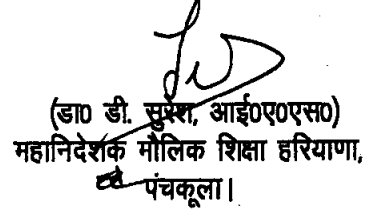 (डा० डी. सुरेश, आई०ए०एस०)
महानिदेशक मौलिक शिक्षा हरियाणा,
पंचकूला।